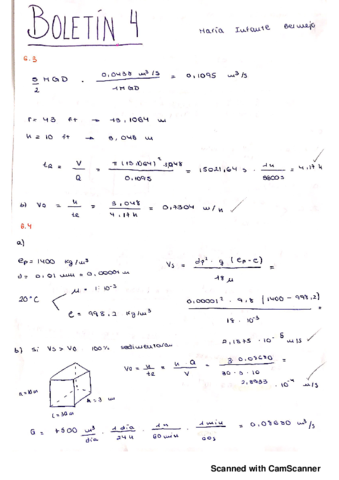 BOLETÍN 4
María Infante Bermejo
6.3
5/2 MGD · 0,0438 m³/s / 1 MGD = 0,1095 m³/s
r = 43 ft → 13,1064 m
h = 10 ft → 3,048 m
tR = V/Q = π(13,1064)² · 3,048 / 0,1095 = 15021,64 s · 1h / 3600s = 4,17 h
b) V0 = h/tR = 3,048 / 4,17 h = 0,7304 m/h
6.4
a)
ρp = 1400 kg/m³
d = 0,01 mm = 0,00001 m
Vs = dp² · g (ρp-ρ) / 18 μ =
20°C
μ = 1·10⁻³
ρ = 998,2 kg/m³
0,00001² · 9,8 (1400 - 998,2) / 18 · 10⁻³ =
2,1875 · 10⁻⁵ m/s
b) Si Vs > V0 100% sedimentación
V0 = h/tR = h Q / V = 3 0,08680 / 30 · 3 · 10 =
2,8933 · 10⁻⁴ m/s
h = 3 m
l = 30m
Q = 7500 m³/día · 1 día / 24 h · 1 h / 60 min · 1 min / 60s = 0,08680 m³/s
Scanned with CamScanner